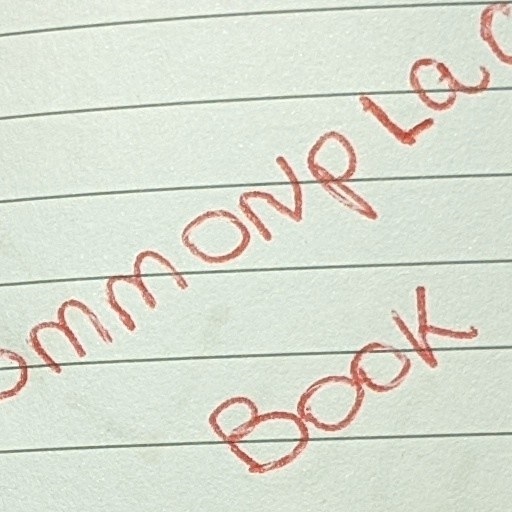 ommonplac
Book